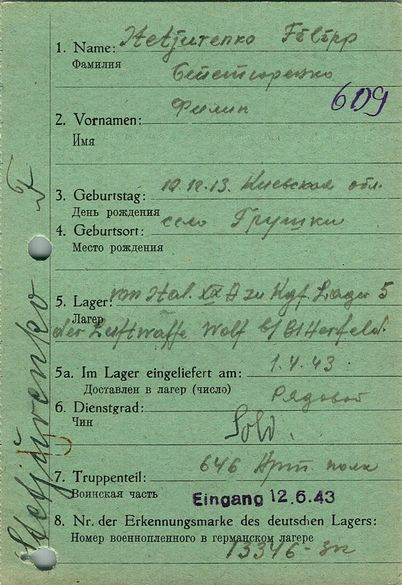 1. Name: Stetjurenko Filipp
Фамилия
Стетюренко
Филип
609
2. Vornamen:
Имя
3. Geburtstag: 10.12.13. Киевской обл.
День рождения
4. Geburtsort: село Грушки
Место рождения
5. Lager: von Stal. XX A zu Kgf. Lager 5
Лагер
der Luftwaffe Wolf b/
5a. Im Lager eingeliefert am: 1.4.43.
Доставлен в лагер (число)
6. Dienstgrad: Рядовой
Чин
Sold.
7. Truppenteil: 646 Арт. полк
Воинская часть
Eingang 12.6.43
8. Nr. der Erkennungsmarke des deutschen Lagers:
Номер военнопленного в германском лагере
Stetjurenko F